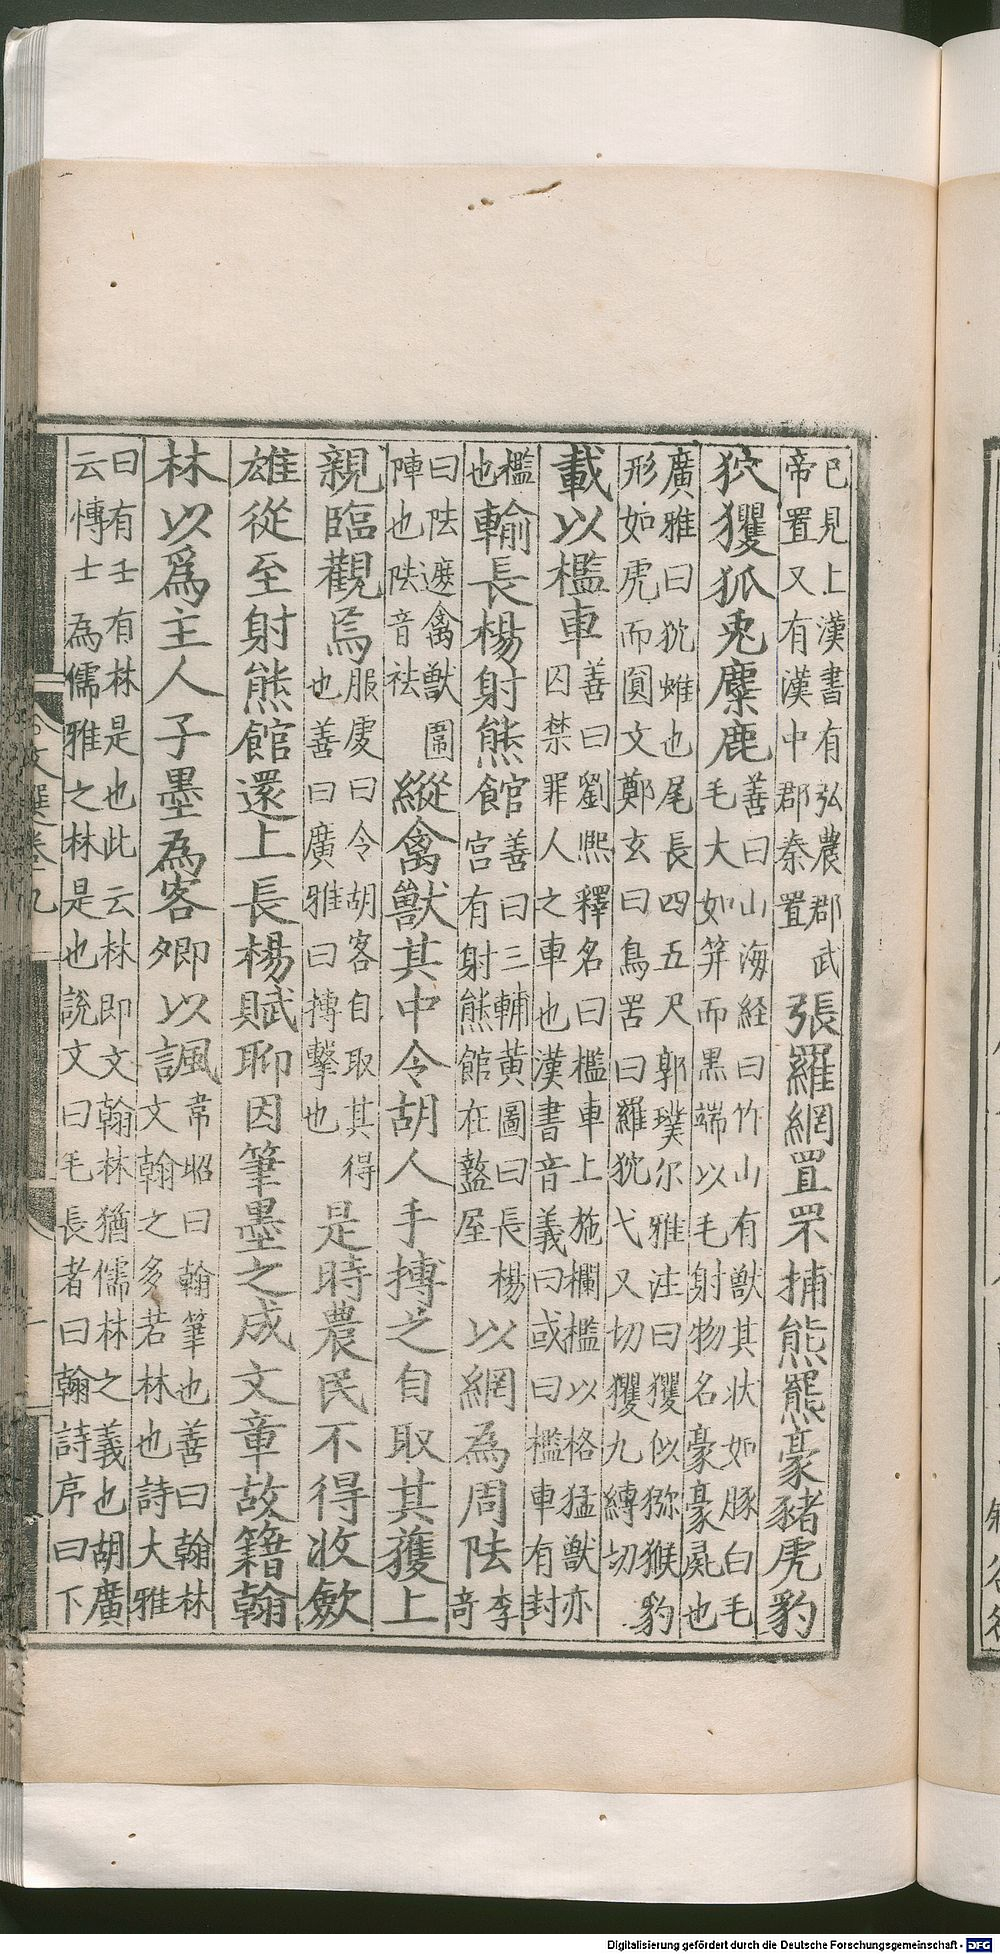 已見上漢書有弘農郡武
帝置又有漢中郡秦置
張羅網罝罘捕熊羆豪豬虎豹
狖玃狐兎麋鹿
善曰山海経曰竹山有獸其状如豚白毛
毛大如笄而黑端以毛射物名豪豪彘也
廣雅曰狖蜼也尾長四五尺郭璞尔雅注曰玃似獼猴豹
形如虎而圓文鄭玄曰鳥罟曰羅狖弋又切玃九縛切
載以檻車
善曰劉熈釋名曰檻車上施欄檻以格猛獸亦
囚禁罪人之車也漢書音義曰或曰檻車有封
檻
也
輸長楊射熊館
善曰三輔黃圖曰長楊
宮有射熊館在盩屋
以網為周阹
李
奇
曰阹遮禽獸圍
陣也阹音祛
縱禽獸其中令胡人手搏之自取其獲上
親臨觀焉
服虔曰令胡客自取其得
也善曰廣雅曰搏擊也
是時農民不得收斂
雄從至射熊館還上長楊賦聊因筆墨之成文章故籍翰
林以爲主人子墨為客卿以諷
韋昭曰翰筆也善曰翰林
文翰之多若林也詩大雅
曰有壬有林是也此云林即文翰林猶儒林之義也胡廣
云愽士為儒雅之林是也說文曰毛長者曰翰詩序曰下
文選卷九
Digitalisierung gefördert durch die Deutsche Forschungsgemeinschaft - DFG